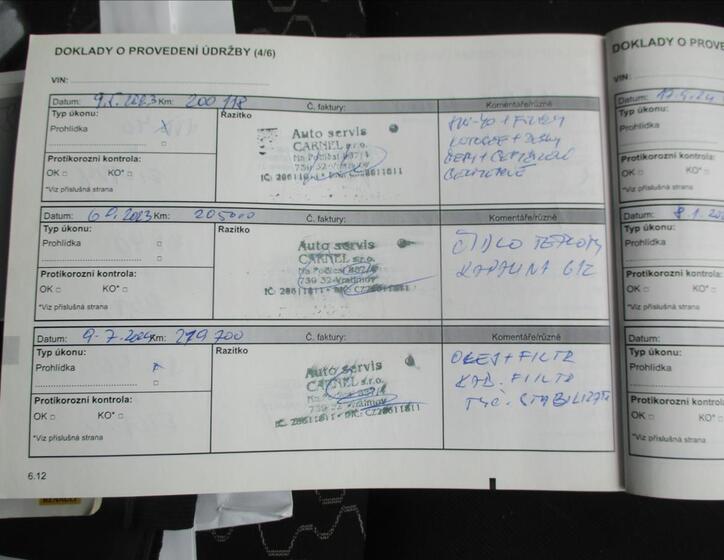 DOKLADY O PROVEDENÍ ÚDRŽBY (4/6)
VIN:
Datum: 9.5.2023 Km: 200 718 Č. faktury: Komentáře/různé
Typ úkonu:
Prohlídka
Razítko
Auto servis
CARNEL s.r.o.
+ FILTRY
KOTOUČE + DESKY
Protikorozní kontrola:
OK KO*
*Viz příslušná strana
Datum: 2023 Km: 205000 Č. faktury: Komentáře/různé
Typ úkonu:
Prohlídka
Razítko
Auto servis
CARNEL s.r.o.
739 32 Vratimov
IČ: 28611811 • DIČ: CZ28611811
ČIDLO TEPLOTY
KAPALINA
Protikorozní kontrola:
OK KO*
*Viz příslušná strana
Datum: 9-7.2024 Km: 219 700 Č. faktury: Komentáře/různé
Typ úkonu:
Prohlídka
Razítko
Auto servis
CARNEL s.r.o.
739 32 Vratimov
IČ: 28611811 • DIČ: CZ28611811
OLEJ + FILTR
KAB. FILTR
TYČ. STABILIZÁT
Protikorozní kontrola:
OK KO*
*Viz příslušná strana
6.12
DOKLADY O PROVE
VIN:
Datum:
Typ úkonu:
Prohlídka
Protikorozní kontrola
OK KO*
*Viz příslušná strana
Datum: 8.1.202
Typ úkonu:
Prohlídka
Protikorozní kontrola
OK KO*
*Viz příslušná strana
Datum:
Typ úkonu:
Prohlídka
Protikorozní kontrola
OK KO*
*Viz příslušná strana
RENAULT